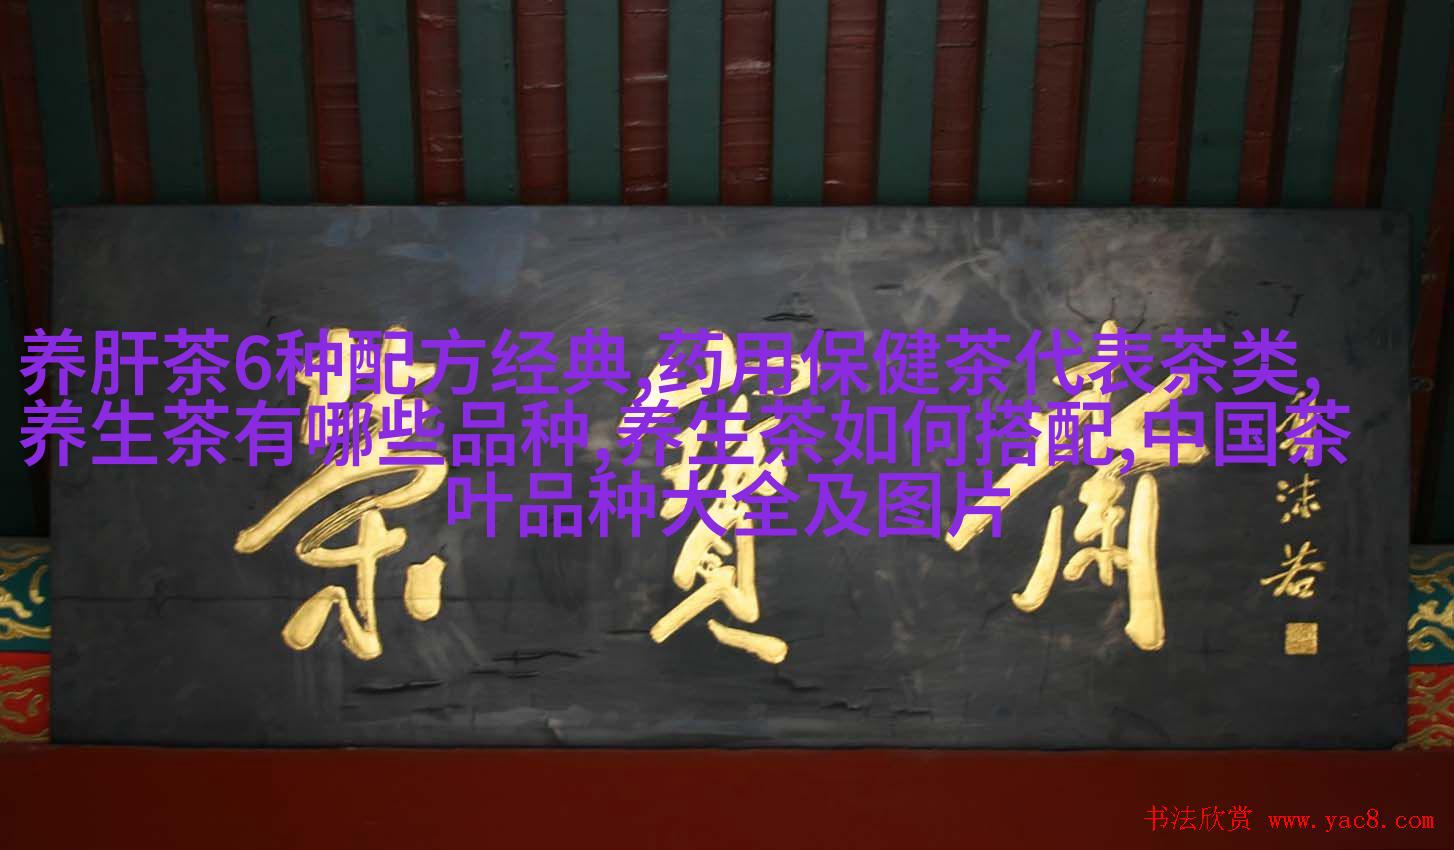 养肝茶6种配方经典,药用保健茶代表茶类,
养生茶有哪些品种,养生茶如何搭配,中国茶
叶品种大全及图片
荣寶斎
郭沫若
书法欣赏 www.yac8.com